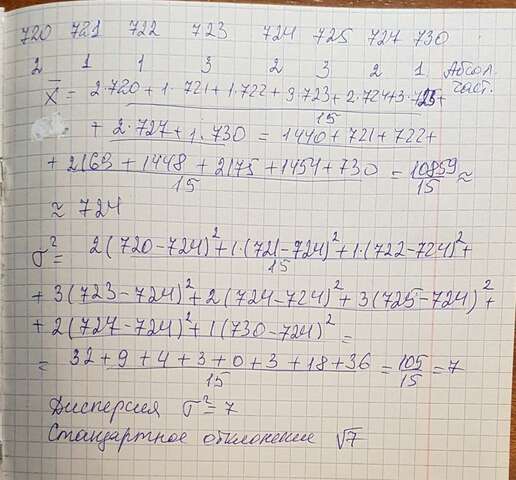 720 721 722 723 724 725 724 730
2 1 1 3 2 3 2 1 Абсол. част.
x̄ = 2·720 + 1·721 + 1·722 + 3·723 + 2·724 + 3·725 +
15
+ 2·727 + 1·730 = 1440 + 721 + 722 +
+ 2169 + 1448 + 2175 + 1454 + 730 = 10859 ≈
15 15
≈ 724
σ² = 2(720-724)² + 1·(721-724)² + 1·(722-724)² +
15
+ 3(723-724)² + 2(724-724)² + 3(725-724)² +
+ 2(727-724)² + 1(730-724)² =
= 32 + 9 + 4 + 3 + 0 + 3 + 18 + 36 = 105 = 7
15 15
Дисперсия σ² = 7
Стандартное отклонение √7